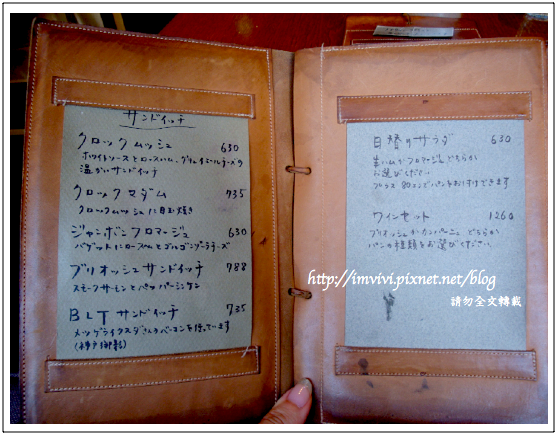 サンドイッチ
クロックムッシュ 630
ホワイトソースとロースハム、グリュイエールチーズの
温かいサンドイッチ
クロックマダム 735
クロックムッシュに目玉焼き
ジャンボンフロマージュ 630
バゲットにロースハムとゴルゴンゾーラチーズ
ブリオッシュサンドイッチ 788
スモークサーモンと
BLTサンドイッチ 735
メツゲライクスダさんのベーコンを使っています
(神戸御影)
日替のサラダ 630
生ハムかフロマージュどちらか
お選びください
プラス 80エンでパンをお付けできます
ワインセット 1260
ブリオッシュかカンパーニュ どちらか
パンの種類をお選びください
http://imvivi.pixnet.net/blog
請勿全文轉載